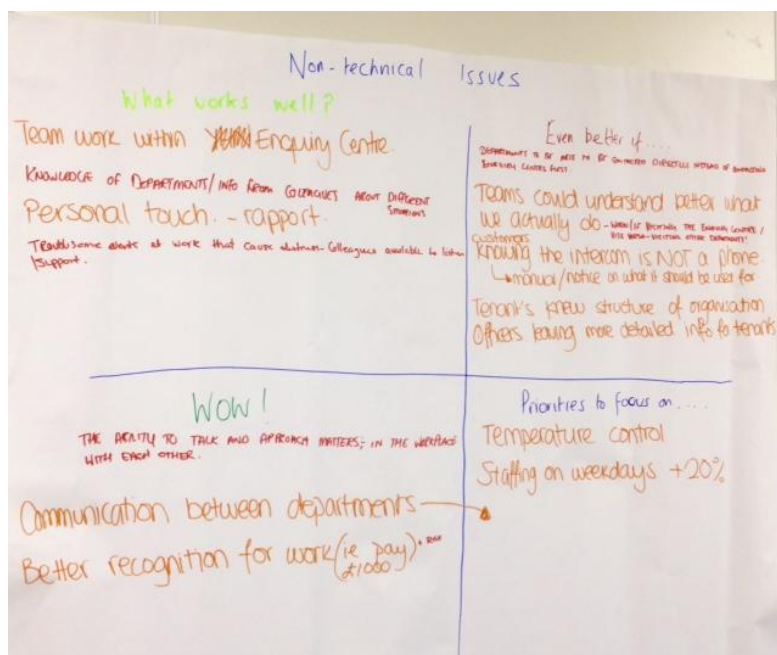 Non-technical Issues
What works well?
Team work within Enquiry Centre.
KNOWLEDGE OF DEPARTMENTS/INFO FROM COLLEAGUES ABOUT DIFFERENT
SITUATIONS
Personal touch. - rapport.
Troublesome alerts at work that cause - Colleagues available to listen
/support.
Even better if....
DEPARTMENTS TO BE ABLE TO BE CONTACTED DIRECTLY INSTEAD OF
ENQUIRY CENTRE FIRST.
Teams could understand better what
we actually do - WHEN/IF VISITING THE ENQUIRY CENTRE /
VICE VERSA - VISITING OTHER DEPARTMENTS.
customers
Knowing the intercom is NOT a phone
manual/notice on what it should be used for
Tenant's knew structure of organisation
Officers leaving more detailed info fo tenants
WOW!
THE ABILITY TO TALK AND APPROACH MATTERS; IN THE WORKPLACE
WITH EACH OTHER.
Communication between departments
Better recognition for work (ie pay)
£1000
Priorities to focus on....
Temperature control
Staffing on weekdays +20%